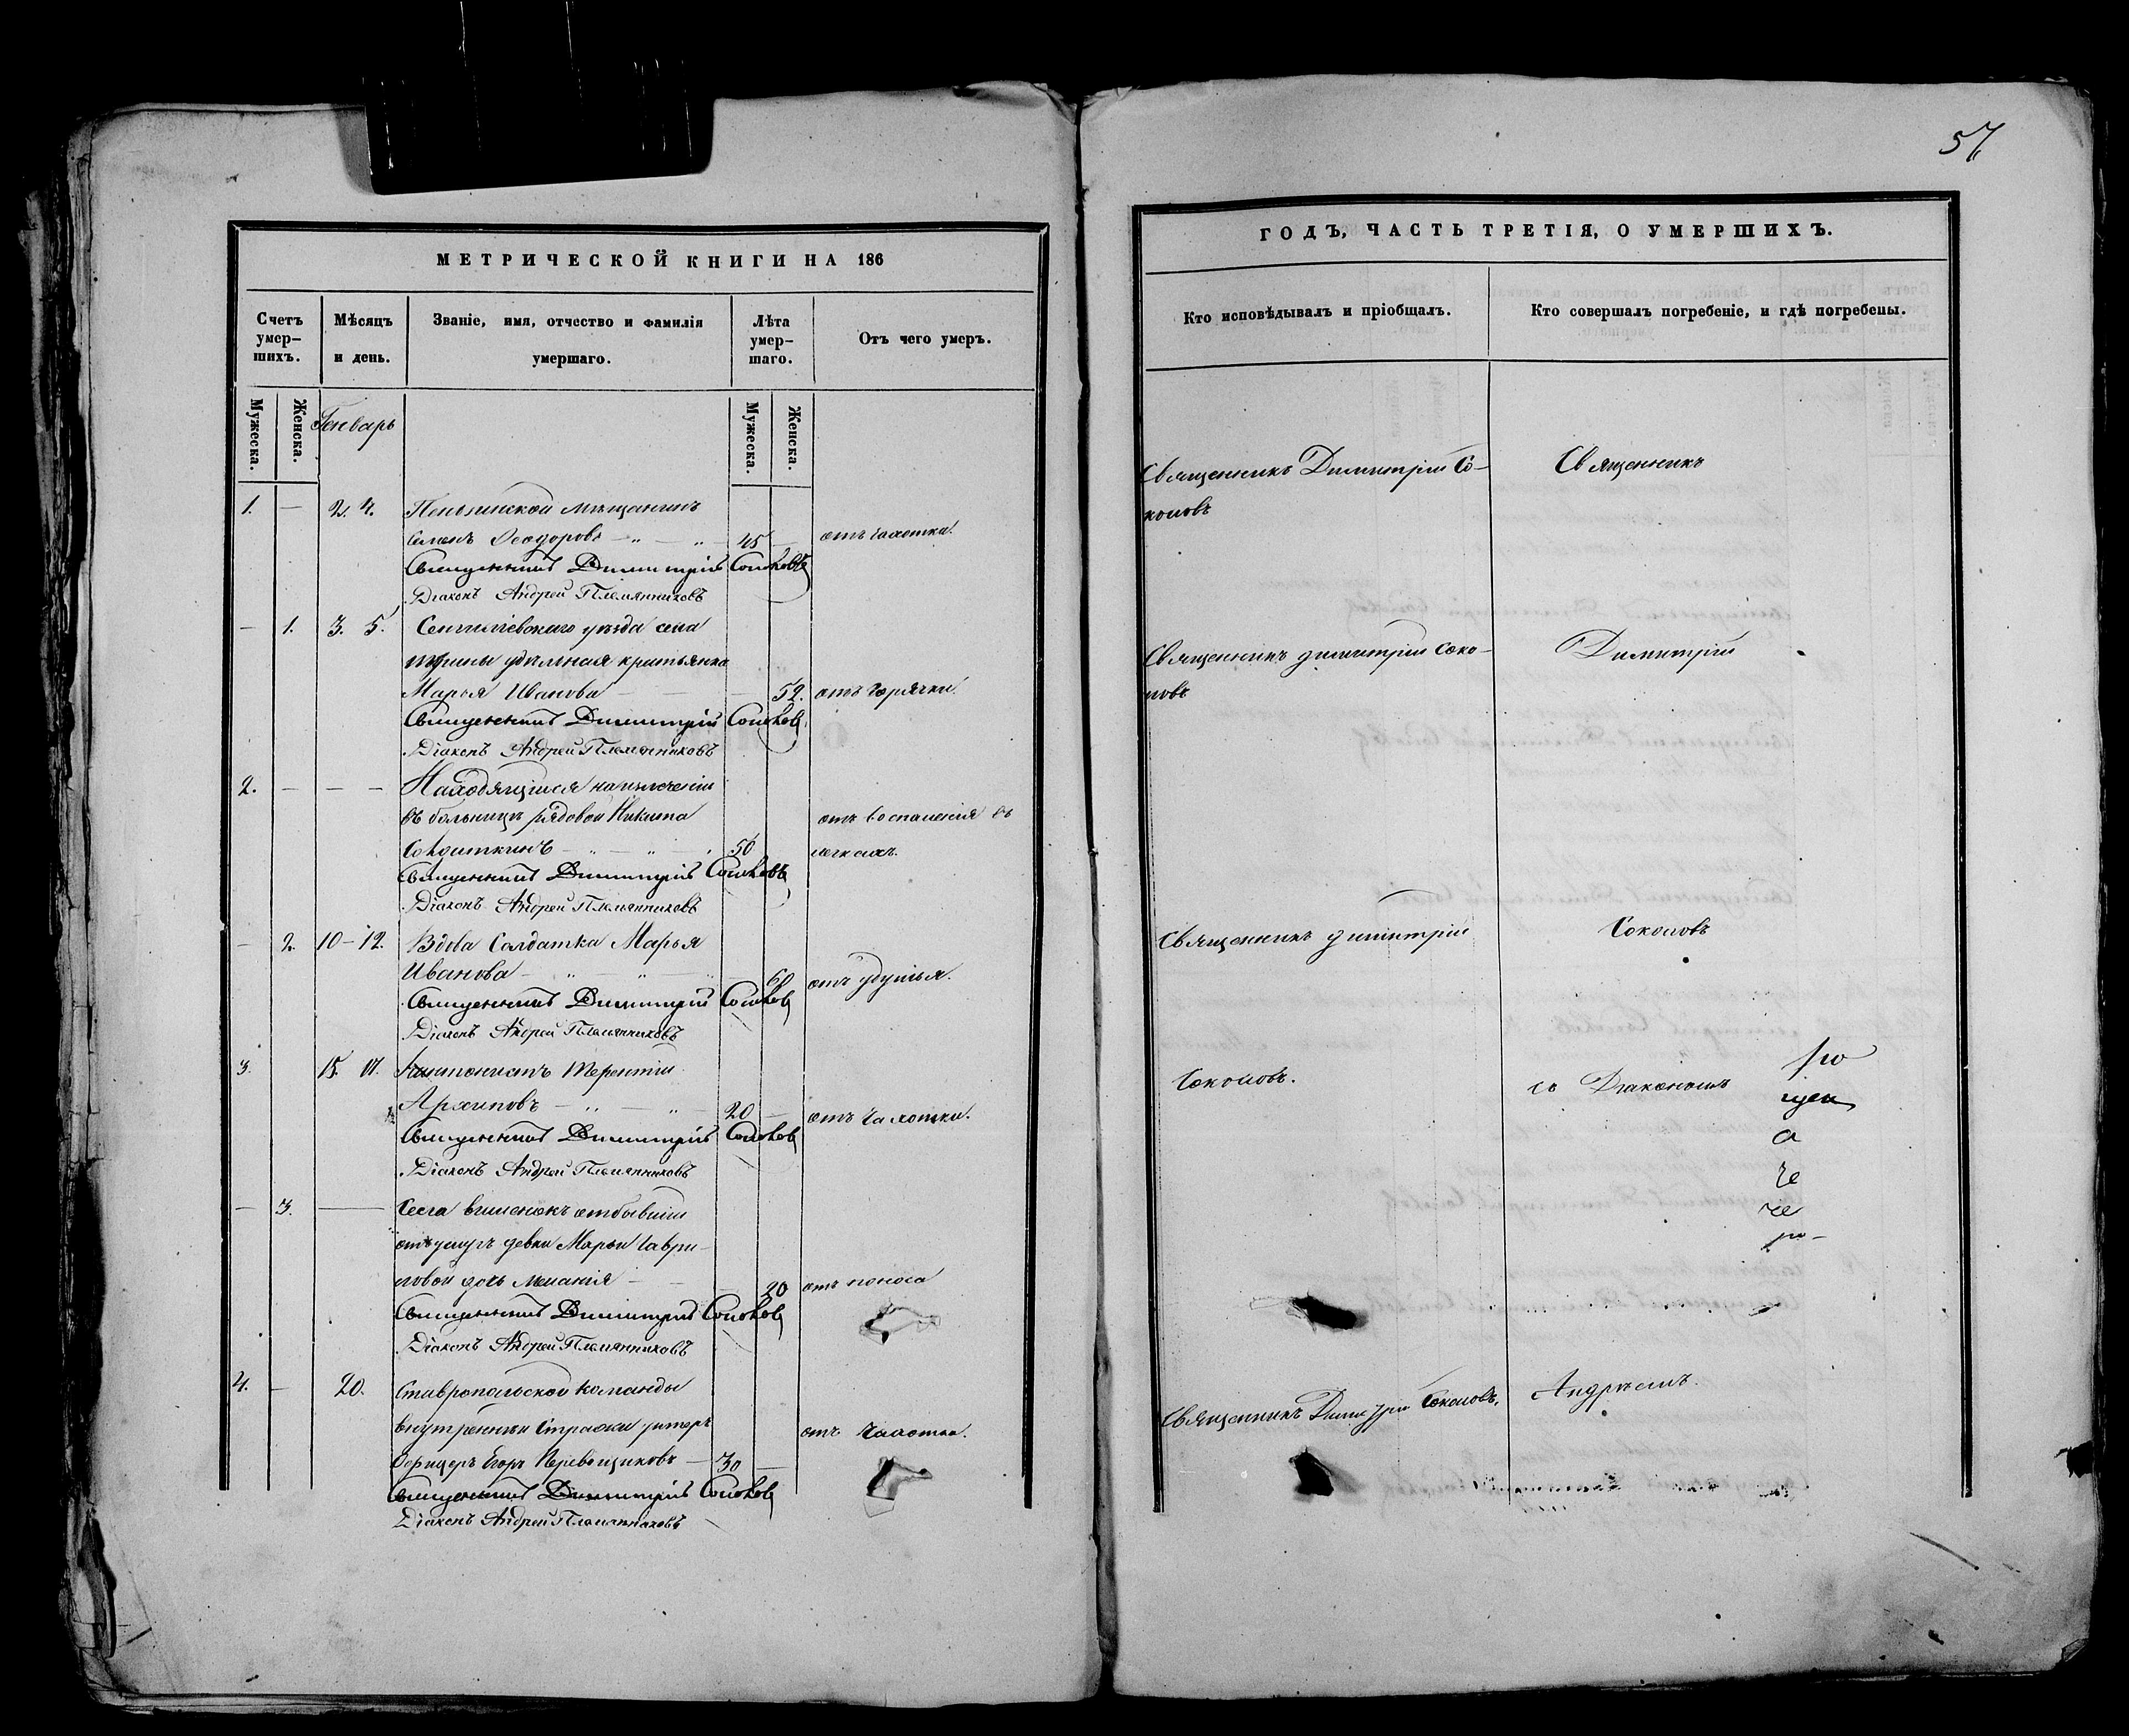 57
МЕТРИЧЕСКОЙ КНИГИ НА 186
Счетъ умер-шихъ.
Мѣсяцъ и день.
Званіе, имя, отчество и фамилія умершаго.
Лѣта умер-шаго.
Отъ чего умеръ.
Мужеска.
Женска.
Генварь
Мужеска.
Женска.
1. — 2. 4. мѣщанинъ
Семенъ Ѳеодоровъ — „ — „ — 45 — отъ чахотки.
Священникъ Димитрій Соколовъ
Діаконъ Андрей Племянниковъ
— 1. 3. 5. уѣзда села
удѣльная крестьянка
Марья Иванова — — — 52. отъ горячки.
Священникъ Димитрій Соколовъ
Діаконъ Андрей Племянниковъ
2. — — — Находящійся на излеченіи
въ больницѣ рядовой Никита отъ воспаленія въ
— „ — „ — 50 легкихъ.
Священникъ Димитрій Соколовъ
Діаконъ Андрей Племянниковъ
— 2. 10–12. Вдова Солдатка Марья
Иванова — „ — „ — „ — 60 отъ удушья.
Священникъ Димитрій Соколовъ
Діаконъ Андрей Племянниковъ
3. 15. Терентій
Архиповъ — „ — „ — 20 — отъ чахотки.
Священникъ Димитрій Соколовъ
Діаконъ Андрей Племянниковъ
— 3. — Села
девки Марьи Гаври-
ловой дочь Меланія — — 20 отъ поноса
Священникъ Димитрій Соколовъ
Діаконъ Андрей Племянниковъ
4. — 20. Ставропольской команды
внутренней Стражи унтеръ отъ чахотки.
Офицеръ Егоръ Перевощиковъ — 30 —
Священникъ Димитрій Соколовъ
Діаконъ Андрей Племянниковъ
ГОДЪ, ЧАСТЬ ТРЕТІЯ, О УМЕРШИХЪ.
Кто исповѣдывалъ и пріобщалъ.
Кто совершалъ погребеніе, и гдѣ погребены.
Священникъ Димитрій Со- Священникъ
коловъ
Священникъ димитрій Соко- Димитрій
ловъ
Священникъ димитрій Соколовъ
Соколовъ. съ Діакономъ
Священникъ Соколовъ, Андреемъ.